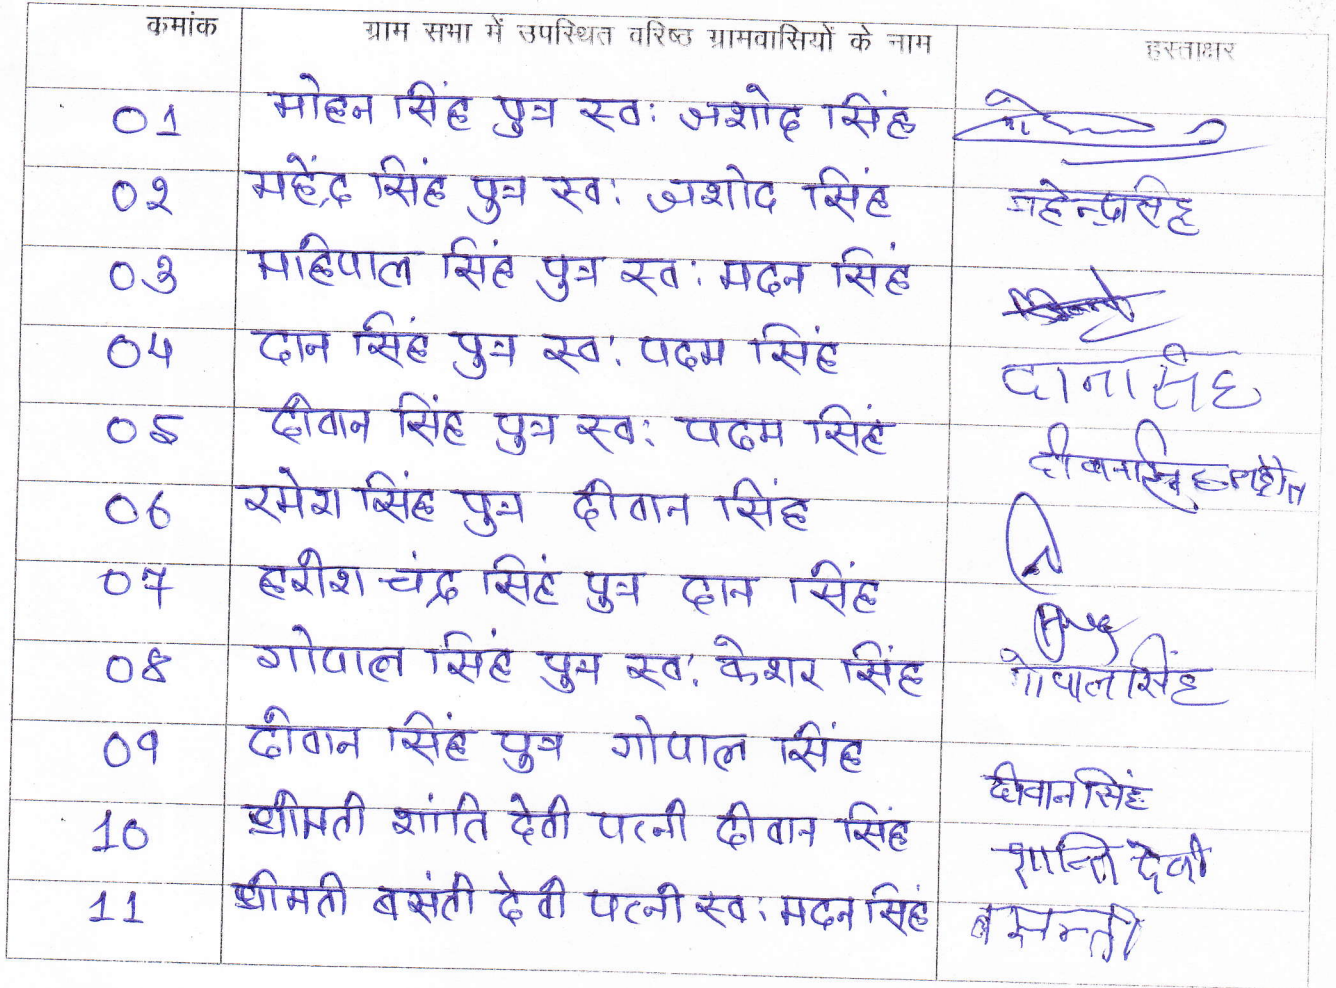 कमांक ग्राम सभा में उपस्थित वरिष्ठ ग्रामवासियों के नाम हस्ताक्षर
01 मोहन सिंह पुत्र स्व: जशोद सिंह
02 महेंद्र सिंह पुत्र स्व: जशोद सिंह महेन्द्रसिंह
03 महिपाल सिंह पुत्र स्व: मदन सिंह
04 दान सिंह पुत्र स्व: पदम सिंह दानसिंह
05 दीवान सिंह पुत्र स्व: पदम सिंह
06 रमेश सिंह पुत्र दीवान सिंह
07 हरीश चंद्र सिंह पुत्र दान सिंह
08 गोपाल सिंह पुत्र स्व: केशर सिंह गोपालसिंह
09 दीवान सिंह पुत्र गोपाल सिंह दीवान सिंह
10 श्रीमती शांति देवी पत्नी दीवान सिंह शान्ति देवी
11 श्रीमती बसंती देवी पत्नी स्व: मदन सिंह बसन्ती